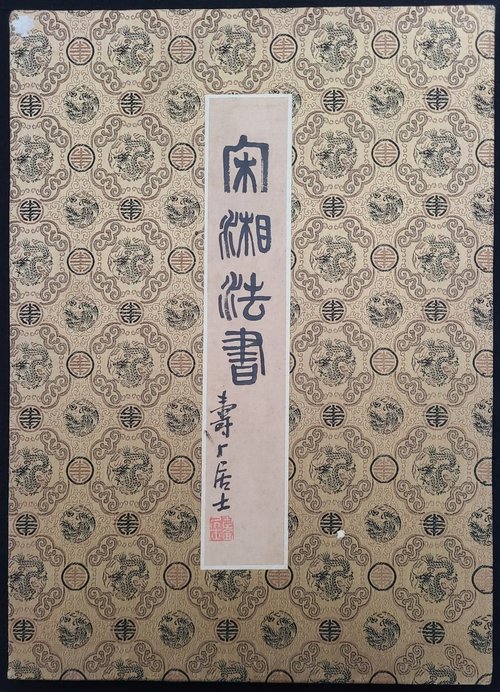 宋湘法書
壽丆居士